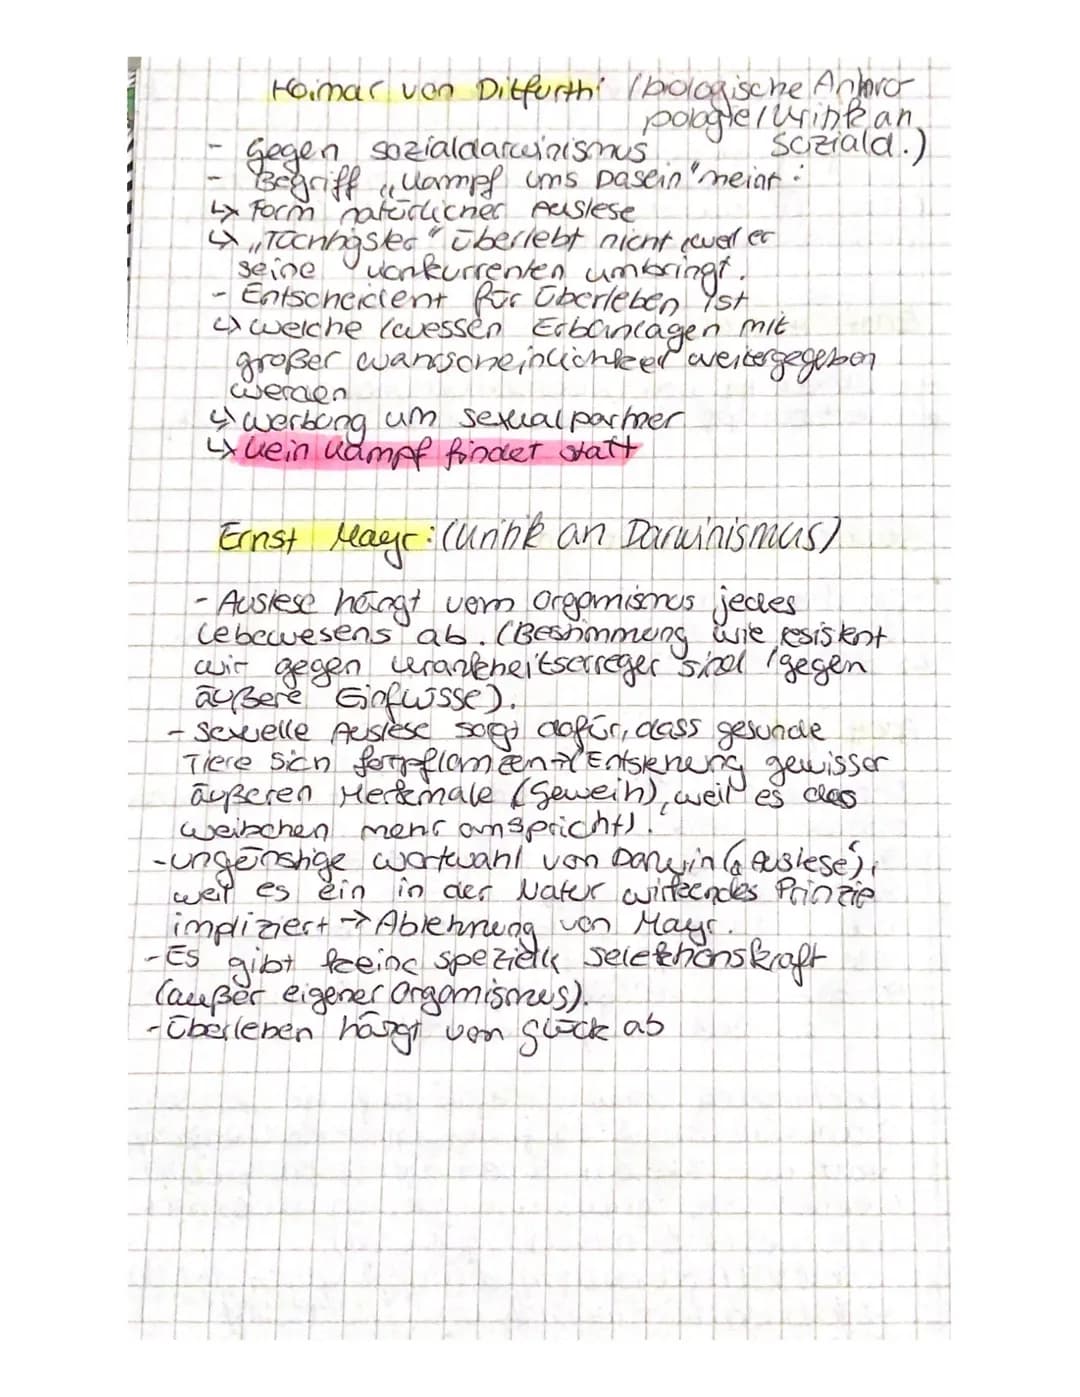 Hoimar von Ditfurth: (biologische Anthro-
pologie / Kritik an
Soziald.)
- Gegen Sozialdarwinismus
- Begriff „Kampf ums Dasein" meint:
↳ Form natürlicher Auslese
↳ „Tüchtigster" überlebt nicht, weil er
seine Konkurrenten umbringt.
- Entscheident für Überleben ist
↳ welche / wessen Erbanlagen mit
großer Wahrscheinlichkeit weitergegeben
werden
↳ Werbung um Sexualpartner
↳ kein Kampf findet statt
Ernst Mayr: (Kritik an Darwinismus)
- Auslese hängt vom Organismus jedes
Lebewesens ab. (Bestimmung wie resistent
wir gegen Krankheitserreger sind / gegen
äußere Einflüsse).
- Sexuelle Auslese sorgt dafür, dass gesunde
Tiere sich fortpflanzen → (Entstehung gewisser
äußeren Merkmale (Geweih), weil es das
Weibchen mehr anspricht).
- ungünstige Wortwahl von Darwin (Auslese),
weil es ein in der Natur wirkendes Prinzip
impliziert → Ablehnung von Mayr.
- Es gibt keine spezielle Selektionskraft
(außer eigener Organismus).
- Überleben hängt vom Glück ab